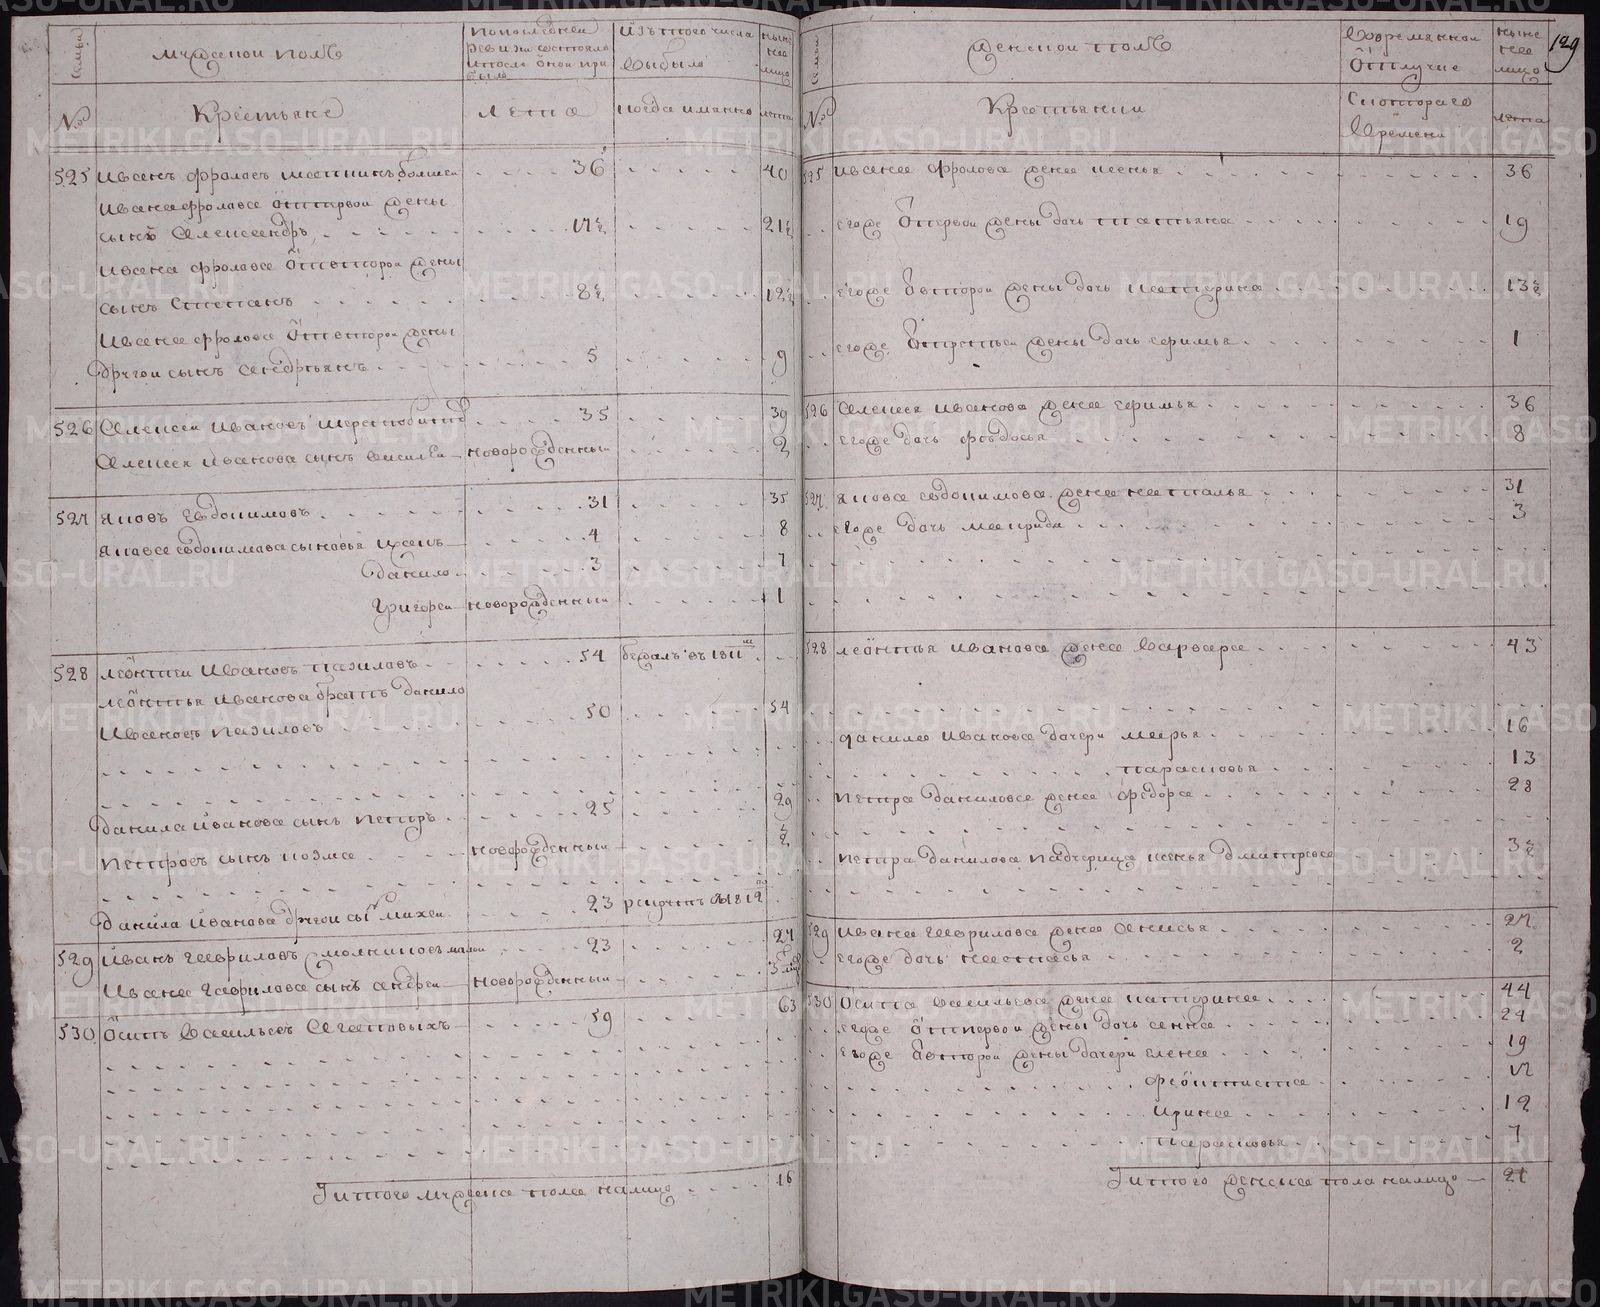 129
семьи
мужеской полъ
по последней
ревизии состояло
и после оной при
было
изъ того числа
выбыло
ныне
лицо
№
Крестьяне
лета
когда имянно
лета
525 Иванъ Фроловъ 36 40
Ивана Фролова от первой жены
сынъ Александръ 17½ 21½
Ивана Фролова от второй жены
сынъ Степанъ 8½ 12½
Ивана Фролова от второй жены
другой сынъ Андреянъ 5 9
526 Алексей Ивановъ 35 39
Алексея Иванова сынъ Василей новорожденный 2
527 Яковъ Евдокимовъ 31 35
Якова Евдокимова сыновья 4 8
Данило 3 7
Григорей новорожденный 1
528 Леонтей Ивановъ Казиловъ 54 бежалъ въ 1811м
Леонтья Иванова братъ Данило
Ивановъ Казиловъ 50 54
Данила Иванова сынъ Петръ 25 29
Петровъ сынъ Козма новорожденный ½
Данила Иванова другой сынъ Михей 23 рекрутъ въ 1812
529 Иванъ Гавриловъ 23 27
Ивана Гаврилова сынъ Андрей новорожденный 3
530 Осипъ Васильевъ Агаповыхъ 59 63
Итого мужеска пола налицо 16
семьи
женской полъ
Во временной
отлучке
ныне
лицо
№
Крестьянки
С котораго
времени
лета
525 Ивана Фролова жена Ксенья 36
его же от первой жены дочь Татьяна 19
его же от второй жены дочь Катерина 13½
его же от третьей жены дочь Ефимья 1
526 Алексея Иванова жена Ефимья 36
его же дочь Федосья 8
527 Якова Евдокимова жена Наталья 31
его же дочь Макрида 3
528 Леонтья Иванова жена Варвара 43
Данила Иванова дочери Марья 16
Парасковья 13
Петра Данилова жена Федора 28
Петра Данилова падчерица Ксенья Дмитрева 3½
529 Ивана Гаврилова жена Анисья 27
его же дочь Настасья 2
530 Осипа Васильева жена Катерина 44
его же от первой жены дочь Анна 24
его же от второй жены дочери Елена 19
17
Ирина 12
Парасковья 7
Итого женска пола налицо 21
METRIKI.GASO-URAL.RU